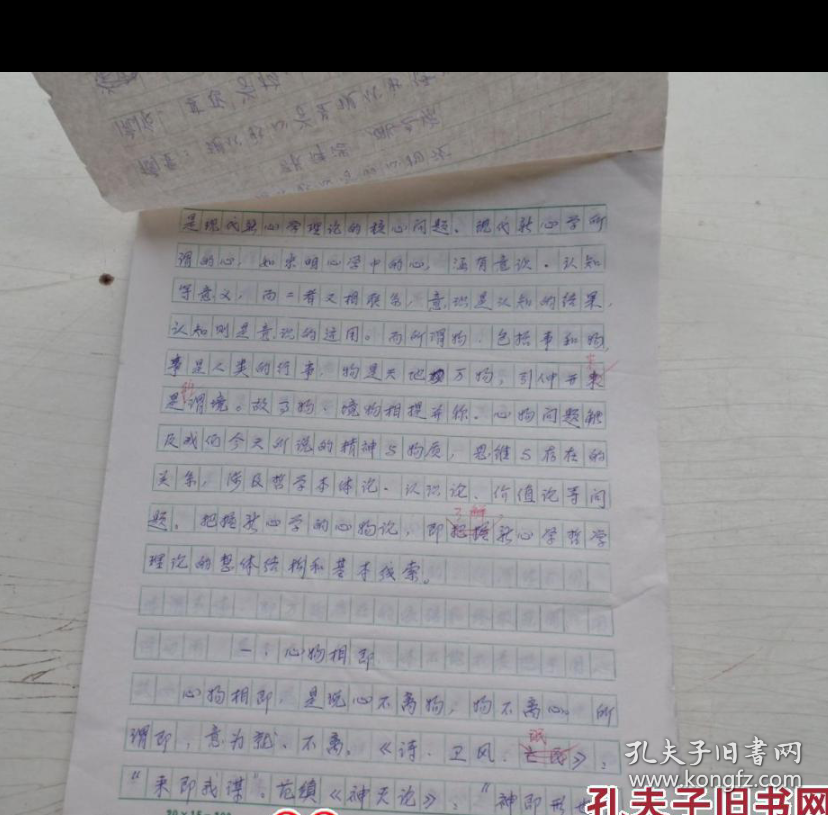 是现代新心学理论的核心问题。现代新心学所
谓的心,如宋明心学中的心,涵有意识、认知
等意义,而二者又相联系,意识是认知的结果,
认知则是意识的运用。而所谓物,包括事和物,
事是人类的行事,物是天地万物,引伸开来
是谓境。故事物、境物相提并称。心物问题能
反我们今天所说的精神与物质,思维与存在的
关系,涉及哲学本体论、认识论、价值论等问
题。把握新心学的心物论,即了解新心学哲学
理论的整体结构和基本线索。
一、心物相即
心物相即,是说心不离物,物不离心。所
谓即,意为就、不离。《诗·卫风·氓》:
“来即我谋”。范缜《神灭论》:“神即形也
孔夫子旧书网
www.kongfz.com
孔夫子旧书网